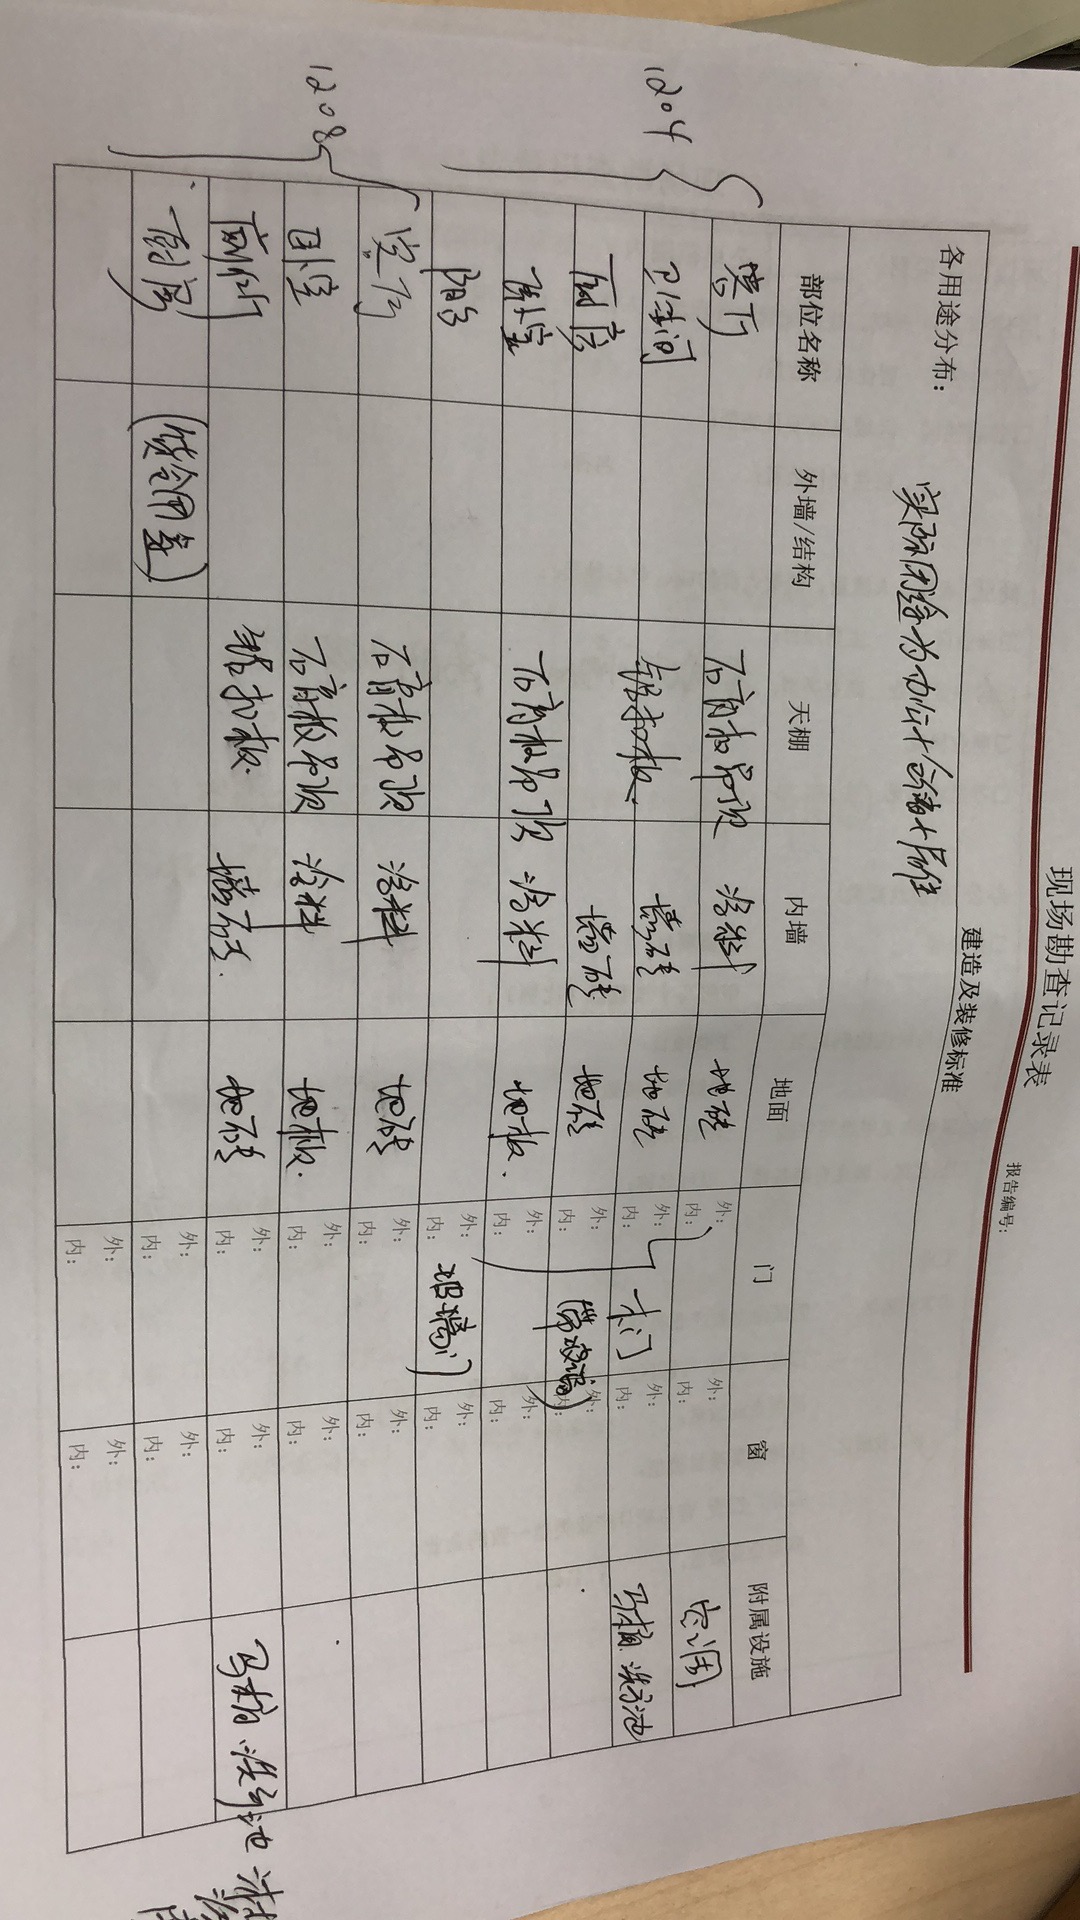 现场勘查记录表
报告编号:
建造及装修标准
各用途分布: 实际用途为办公+仓储+居住
部位名称 外墙/结构 天棚 内墙 地面 门 窗 附属设施
1204
客厅 石膏板吊顶 涂料 地砖 外: 内: 外: 内: 空调
卫生间 铝扣板 墙砖 地砖 外: 内: 木门 外: 内: 马桶 洗手池
厨房 墙砖 地砖 外: 内: 外: 内:
卧室 石膏板吊顶 涂料 地板 外: 内: 外: 内:
阳台 外: 内: 玻璃门 外: 内:
1208
客厅 石膏板吊顶 涂料 地砖 外: 内: 外: 内:
卧室 石膏板吊顶 涂料 地板 外: 内: 外: 内:
厕所 铝扣板 墙砖 地砖 外: 内: 外: 内: 马桶 洗手池
厨房 外: 内: 外: 内:
外: 内: 外: 内: